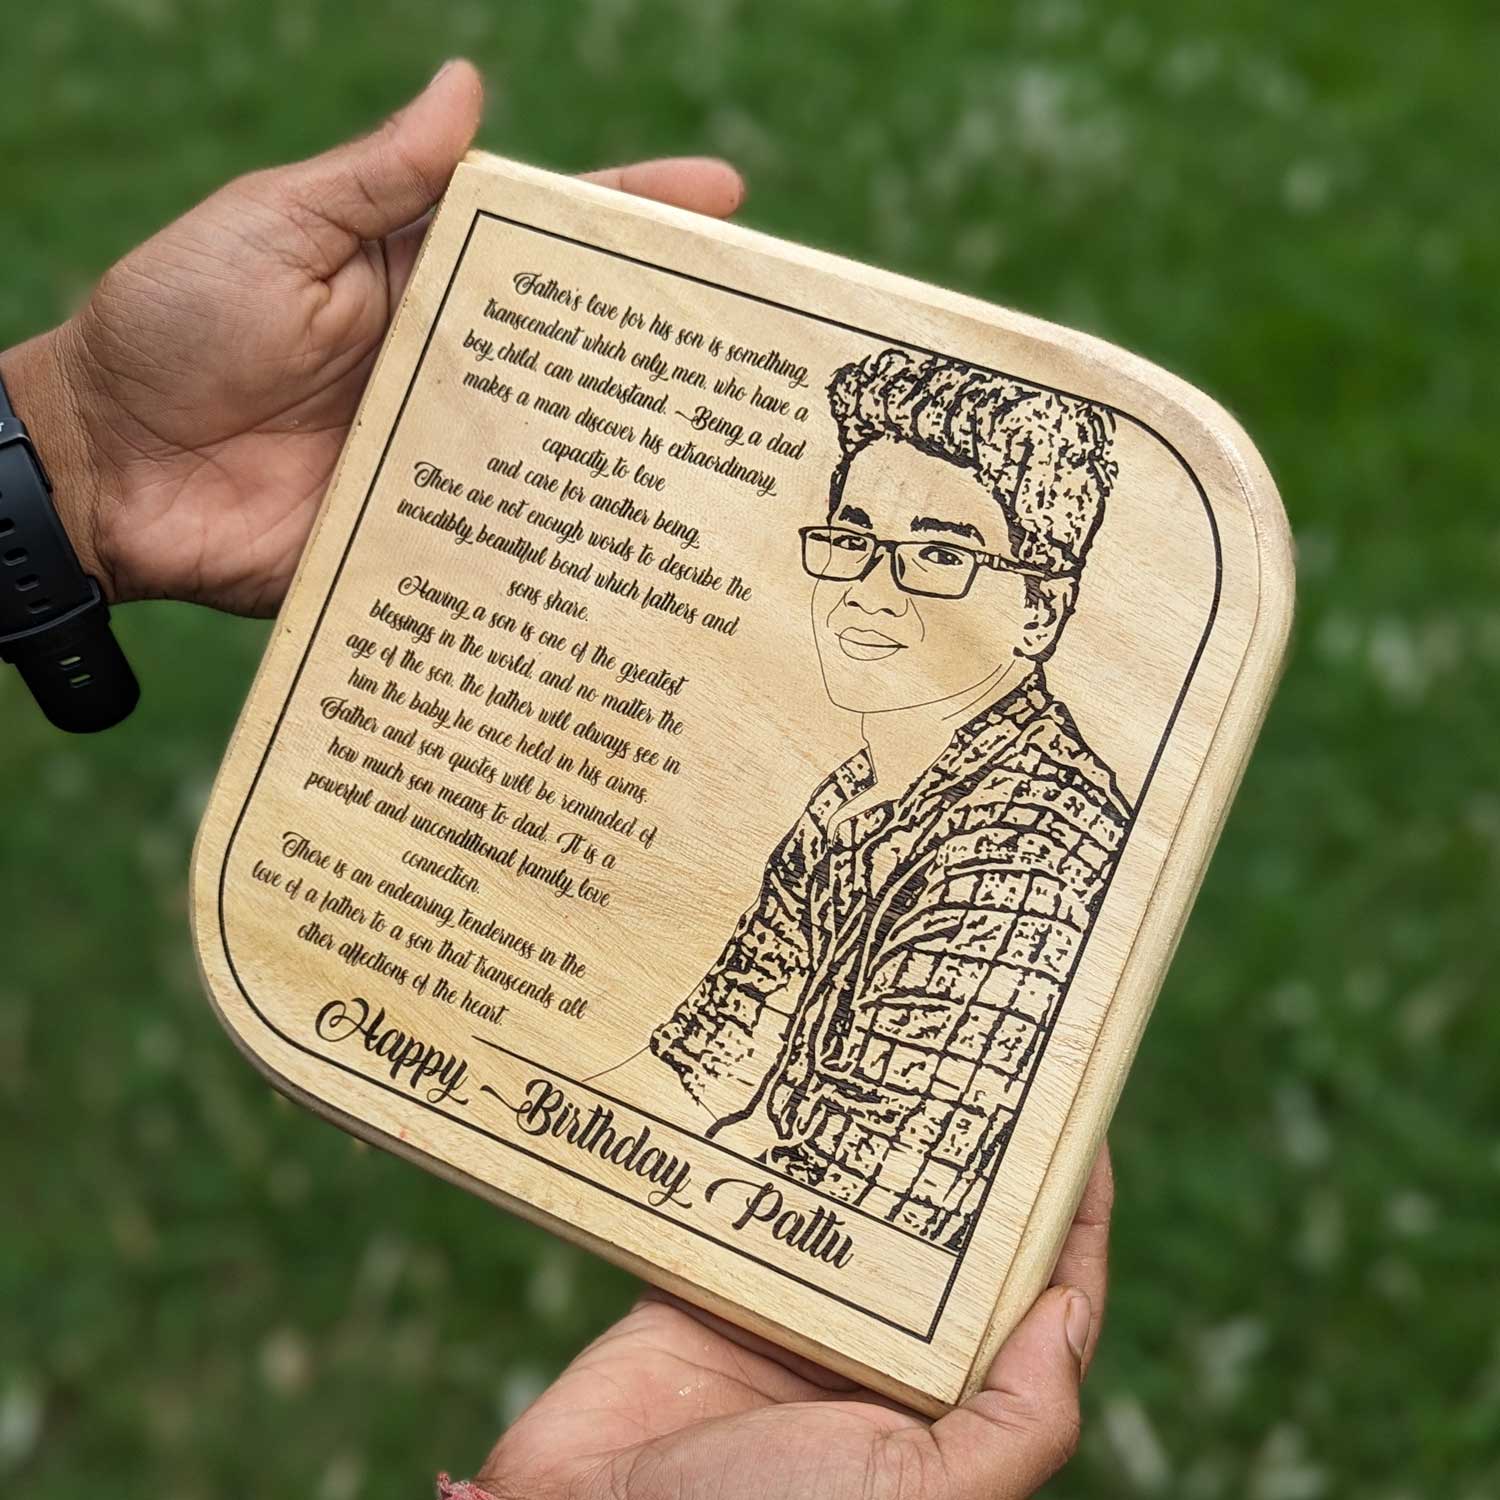 Father's love for his son is something
transcendent which only men, who have a
boy child, can understand. Being a dad
makes a man discover his extraordinary
capacity to love
and care for another being.
There are not enough words to describe the
incredibly beautiful bond which fathers and
sons share.
Having a son is one of the greatest
blessings in the world, and no matter the
age of the son, the father will always see in
him the baby he once held in his arms.
Father and son quotes will be reminded of
how much son means to dad. It is a
powerful and unconditional family love
connection.
There is an endearing tenderness in the
love of a father to a son that transcends all
other affections of the heart.
Happy Birthday Pattu